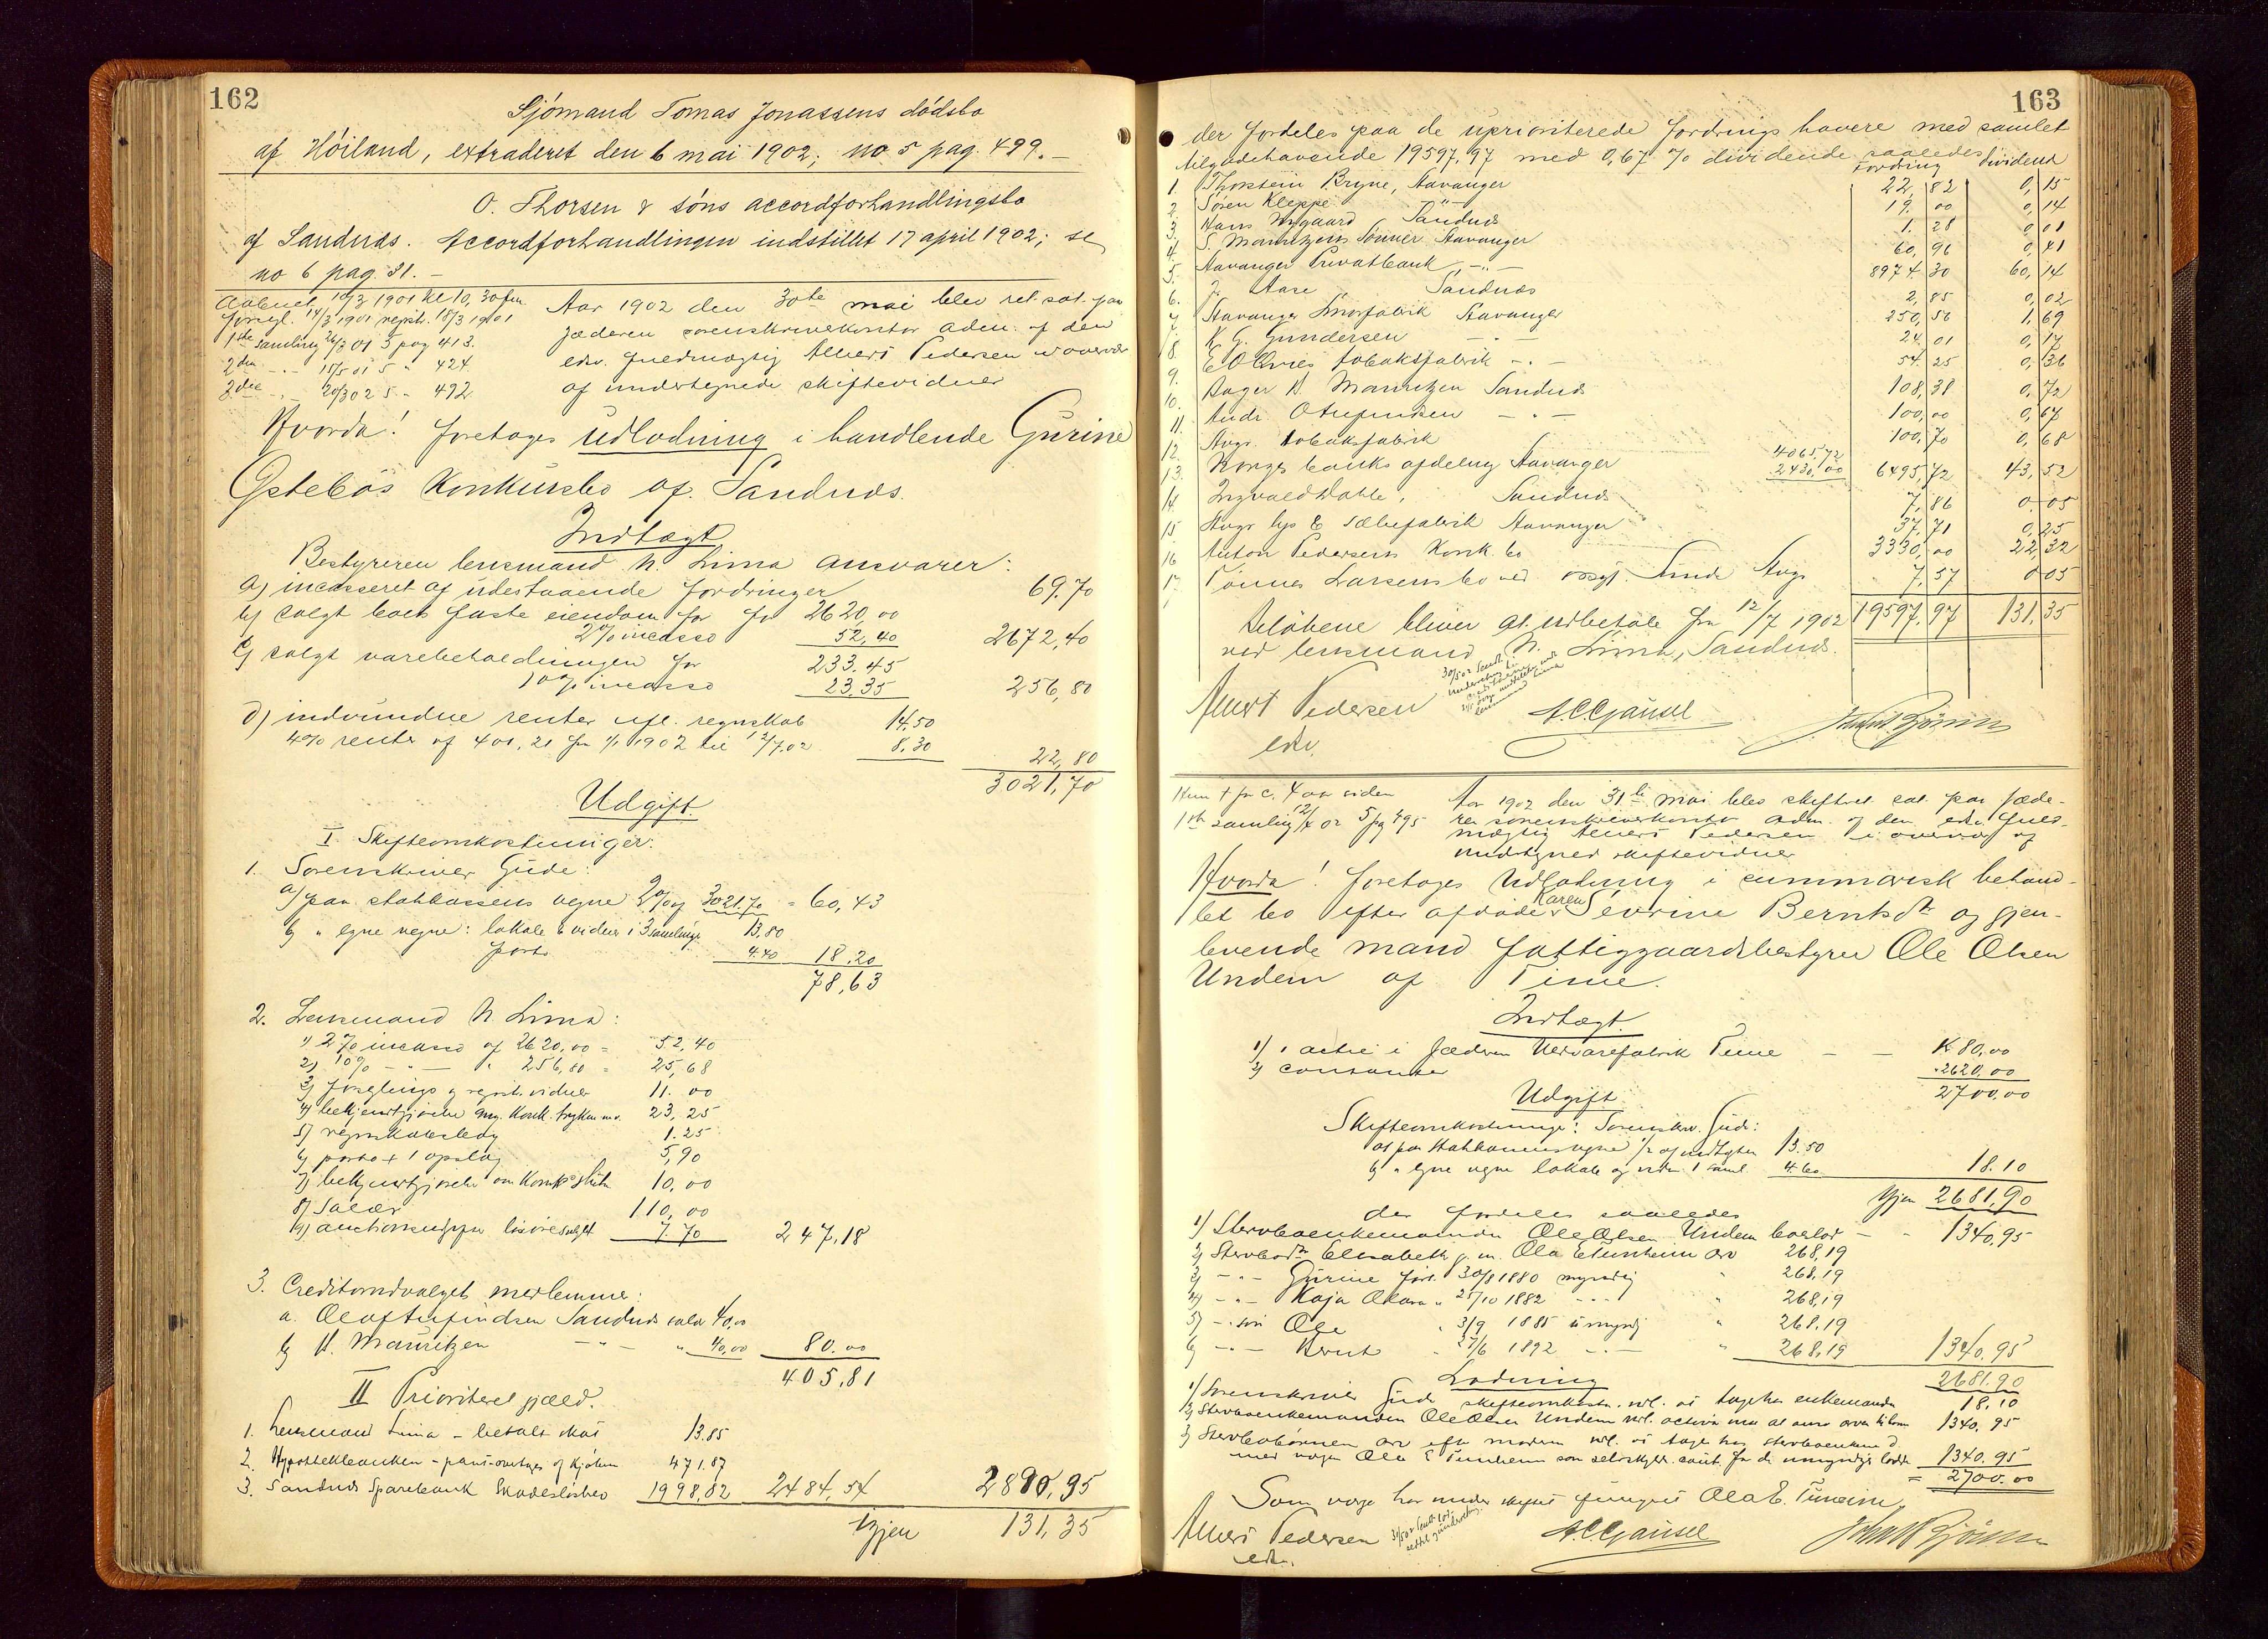 162
Sjómand Tomas Jonassens dódsbo
af Hóiland, extraderet den 6 mai 1902; no 5 pag. 499.-
O. Thorsen & sóns accordforhandlingsbo
af Sandnæs. Accordforhandlingen indstillet 17 april 1902; se
no 6 pag. 31.-
Aabnet 14/3 1901 kl 10,30 fm
forsegl. 14/3 1901 registr. 15/3 1901
1ste samling 26/3 01 5 pag 413.
2den -"- 15/5 01 5 " 424
3die -"- 20/3 02 5 - 492
Aar 1902 den 30te mai blev ret sat paa
Jæderen sorenskriverkontor adm. af den
edsv. fuldmægtig Albert Pedersen i overvær
af undertegnede skiftevidner
Hvorda! foretoges udlodning i handlende Gurine
Østebös Konkursbo af Sandnæs.
Indtægt
Bestyreren lensmand N. Lima ansvarer:
a) incasseret af udestaaende fordringer 69.70
b) solgt boets faste eiendom for kr 2620,00
2% incasso 52,40 2672,40
c) solgt varebeholdningen for 233.45
10% incasso 23.35 256,80
d) indvundne renter ifl. regnskab 14,50
4% renter af 400,21 fra 1/1 1902 til 12/7 02 8.30
22,80
3021,70
Udgift
I. Skifteomkostninger:
1. Sorenskriver Gude:
a) paa statkassens vegne 2% af 3021.70 = 60,43
b) " egne vegne: lokale & vidner i 3 samlinger 13,80
porto 4.40 18.20
78,63
2. Lensmand N. Lima:
1) 2% incasso af 2620,00 = 52,40
2) 10% -"- " 256,80 = 25,68
3) forseglings & registr. vidner 11.00
4) bekjendtgjörelse ang. konk. trykken m.v. 23,25
5) regnskabsbog 1.25
6) porto + 1 opslag 5,90
7) bekjendtgjörelse om konk. slut 10,00
8) Salær 110,00
9) auctionsutgifter lösöresalget 7.70 247,18
3. Creditorudvalgets medlemmer:
a. Oluf Aufindsen Sandnæs salær 40,00
b) H. Mauritzen -"- " 40,00 80.00
405,81
II Prioriteret gjæld.
1. Lensmand Lima - betalt skat 13.85
2. Hypothekbanken - pant overtages af kjöberen 471.87
3. Sandnæs Sparebank Skadeslösbrev 1998,82 2484,54 2890,95
Igjen 131,35
163
der fordeles paa de uprioriterede fordringshavere med samlet
tilgodehavende 19597,97 med 0,67 % dividende saaledes
Fordring Dividend
1. Thorstein Bryne, Stavanger 22,82 0,15
2. Sören Kleppe -"- 19,00 0,14
3. Hans Nygaard Sandnæs 1.28 0,01
4. S. Mauritzens Sönner Stavanger 60,96 0,41
5. Stavanger Privatbank -"- 8974.30 60,14
6. J. Aase Sandnæs 2,85 0,02
7. Stavanger Smörfabrik Stavanger 250,56 1,69
8. K. G. Gundersen -"- 24,01 0,17
9. E Olsens tobaksfabrik -"- 54,25 0,36
10. Bager H. Mauritzen Sandnæs 108,38 0,72
11. Andr. Aufindsen -"- 100,00 0,67
12. Stvgr. tobaksfabrik 100,70 0,68
13. Norges banks afdeling Stavanger 4065.72 2430,00 6495,72 43,52
14. Ingvald Dahle, Sandnæs 7,86 0.05
15 Stvgr lys & sæbefabrik Stavanger 37,71 0,25
16 Anton Pedersens konk. bo 3330,00 22,32
17 Tönnes Larsens bo ved ovsgf. Sunde Stvgr 7,57 0.05
19597,97 131,35
Belöbene bliver at udbetale fra 12/7 1902
ved lensmand N. Lima, Sandnæs.
Albert Pedersen
edsv.
A.C. Gausel
John Bjórnsen
Kun + for c. 4 aar siden
1ste samling 12/4 02 5 pag 495
Aar 1902 den 31te mai blev skifteret sat paa Jæde-
ren sorenskriverkontor adm. af den edsv. fuld-
mægtig Albert Pedersen i overvær af
undertegned skiftevidner
Hvorda! foretoges Udlodning i summarisk behand-
let bo efter afdöde Karen Sevrine Berntsdtr og gjen-
levende mand fattiggaardsbestyrer Ole Olsen
Undem af Time.
Indtægt.
1) 1 actie i Jæderen Uldvarefabrik Time - - Kr 80,00
2) contanter " 2620.00
2700.00
Udgift
Skifteomkostninger: Sorenskr. Gude:
a) paa statkassens vegne 1/2 af indtægten 13.50
b) " egne vegne lokale og vidner 1 saml. 4.60 18.10
Igjen 2681,90
der fordeles saaledes
1) Stervboenkemanden Ole Olsen Undem boslod - " 1340,95
2) Stervbodtr Elisabeth g.m. Ola E Tunheim arv 268,19
3) -"- Gurine född 30/8 1880 myndig " 268,19
4) -"- Kaja Oluva " 25/10 1882 -"- " 268,19
5) -"- sön Ole " 3/9 1885 umyndig " 268.19
6) -"- Bernt " 27/6 1892 -"- " 268,19 1340,95
2681.90
Lodning
1) Sorenskriver Gude skifteomkostn. udl. at tage hos enkemanden 18.10
2) Stervboenkemanden Ole Olsen Undem udl. activa mod at svare arven til börn 1340,95
3) Stervbobörnen arv efter moderen udl. at tage hos stervboenkemd.
med værge Ola E Tunheim som selvskyldn. caut. for de umyndiges lodder 1340.95
= 2700.00
Som værge har under skiftet fungeret Ola E. Tunheim.
Albert Pedersen
edsv.
A.C. Gausel
John Bjórnsen